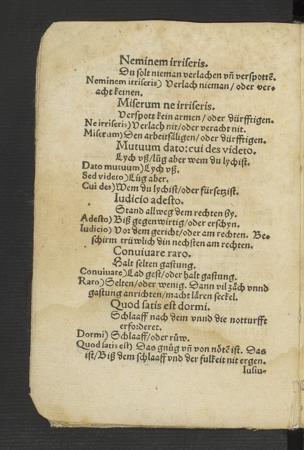 Neminem irriseris.
Du solt nieman verlachen vñ verspottẽ.
Neminem irriseris) Verlach nieman / oder ver⸗
acht keinen.
Miserum ne irriseris.
Verspott kein armen / oder dürfftigen.
Ne irriseris) Verlach nit / oder veracht nit.
Miserum) Den arbeitsäligen / oder dürfftigen.
Mutuum dato: cui des videto.
Lych vß / lůg aber wem du lychist.
Dato mutuum) Lych vß.
Sed videto) Lůg aber.
Cui des) Wem du lychist / oder fürsetzist.
Iudicio adesto.
Stand allweg dem rechten by.
Adesto) Biß gegenwirtig / oder erschyn.
Iudicio) Vor dem gericht / oder am rechten. Be⸗
schirm trüwlich din nechsten am rechten.
Conuiuare raro.
Halt selten gastung.
Conuiuare) Lad gest / oder halt gastung.
Raro) Selten / oder wenig. Dann vil zäch vnnd
gastung anrichten / macht lären seckel.
Quod satis est dormi.
Schlaaff nach dem vnnd die notturfft
erforderet.
Dormi) Schlaaff / oder růw.
Quod satis est) Das gnůg vñ von nötẽ ist. Das
ist / Biß dem schlaaff vnd der fulkeit nit ergen.
Iusiu-